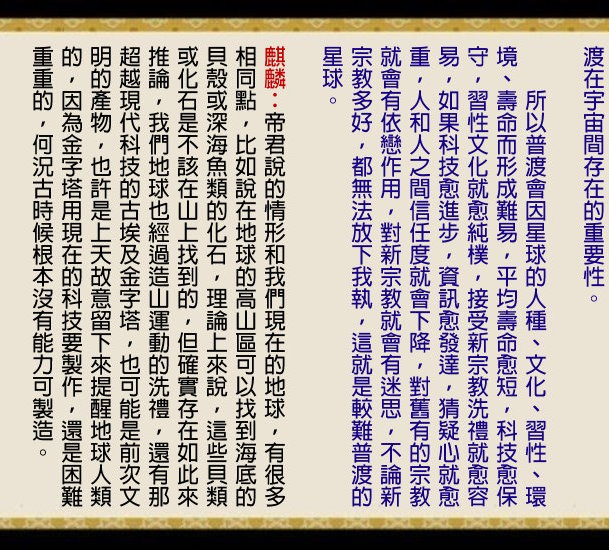 渡在宇宙間存在的重要性。
所以普渡會因星球的人種、文化、習性、環
境、壽命而形成難易，平均壽命愈短，科技愈保
守，習性文化就愈純樸，接受新宗教洗禮就愈容
易，如果科技愈進步，資訊愈發達，猜疑心就愈
重，人和人之間信任度就會下降，對舊有的宗教
就會有依戀作用，對新宗教就會有迷思，不論新
宗教多好，都無法放下我執，這就是較難普渡的
星球。
麒麟：帝君說的情形和我們現在的地球，有很多
相同點，比如說在地球的高山區可以找到海底的
貝殼或深海魚類的化石，理論上來說，這些貝類
或化石是不該在山上找到的，但確實存在如此來
推論，我們地球也經過造山運動的洗禮，還有那
超越現代科技的古埃及金字塔，也可能是前次文
明的產物，也許是上天故意留下來提醒地球人類
的，因為金字塔用現在的科技要製作，還是困難
重重的，何況古時候根本沒有能力可製造。